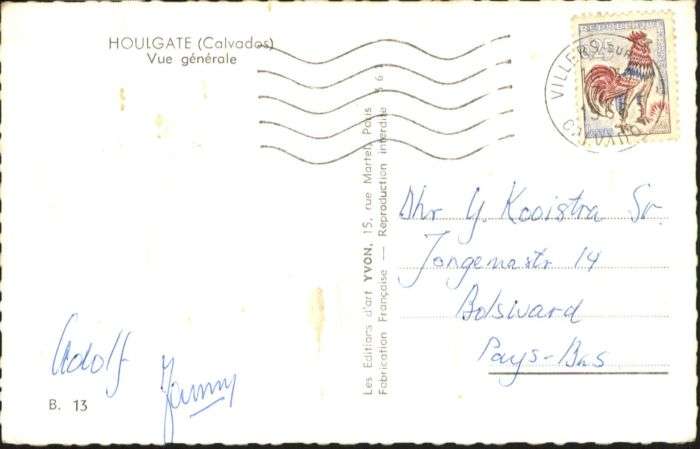 HOULGATE (Calvados)
Vue générale
Adolf
B. 13
Les Editions d'art YVON, 15, rue Martel, Paris
Fabrication Française — Reproduction interdite
VILLERS SUR
CALVADOS
Dhr Y. Kooistra Sr.
Jongemastr 14
Bolsward
Pays-Bas